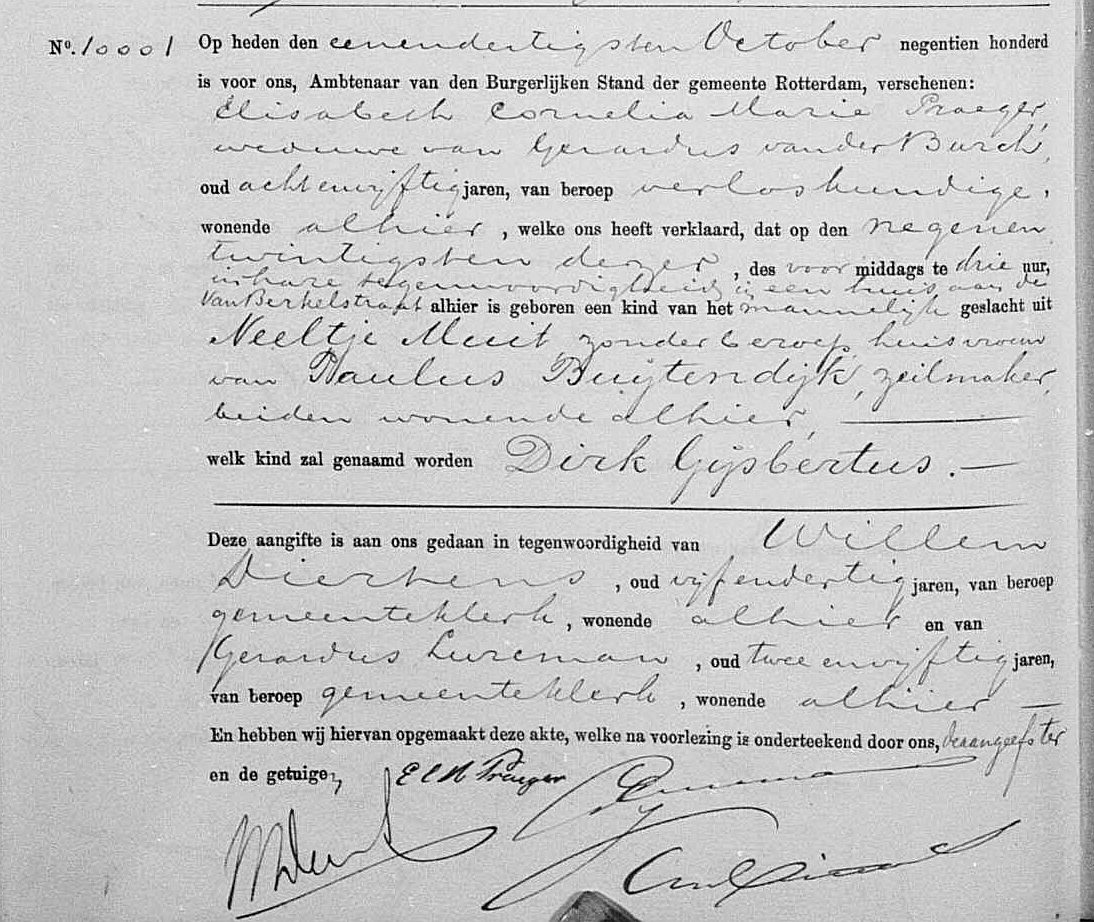 No. 10001 Op heden den eenendertigsten October negentien honderd
is voor ons, Ambtenaar van den Burgerlijken Stand der gemeente Rotterdam, verschenen:
Elisabeth Cornelia Marie Praeger,
weduwe van Gerardus van der Burch,
oud achtenvijftig jaren, van beroep verloskundige,
wonende alhier, welke ons heeft verklaard, dat op den negenen
twintigsten dezer, des voormiddags te drie uur,
in hare tegenwoordigheid in een huis aan de
Van Berkelstraat alhier is geboren een kind van het mannelijk geslacht uit
Neeltje Muit, zonder beroep, huisvrouw
van Paulus Buijtendijk, zeilmaker,
beiden wonende alhier,
welk kind zal genaamd worden Dirk Gijsbertus.
Deze aangifte is aan ons gedaan in tegenwoordigheid van Willem
Dierkens, oud vijfendertig jaren, van beroep
gemeenteklerk, wonende alhier en van
Gerardus Lureman, oud twee envijftig jaren,
van beroep gemeenteklerk, wonende alhier
En hebben wij hiervan opgemaakt deze akte, welke na voorlezing is onderteekend door ons, de aangeefster
en de getuigen, E C M Praeger